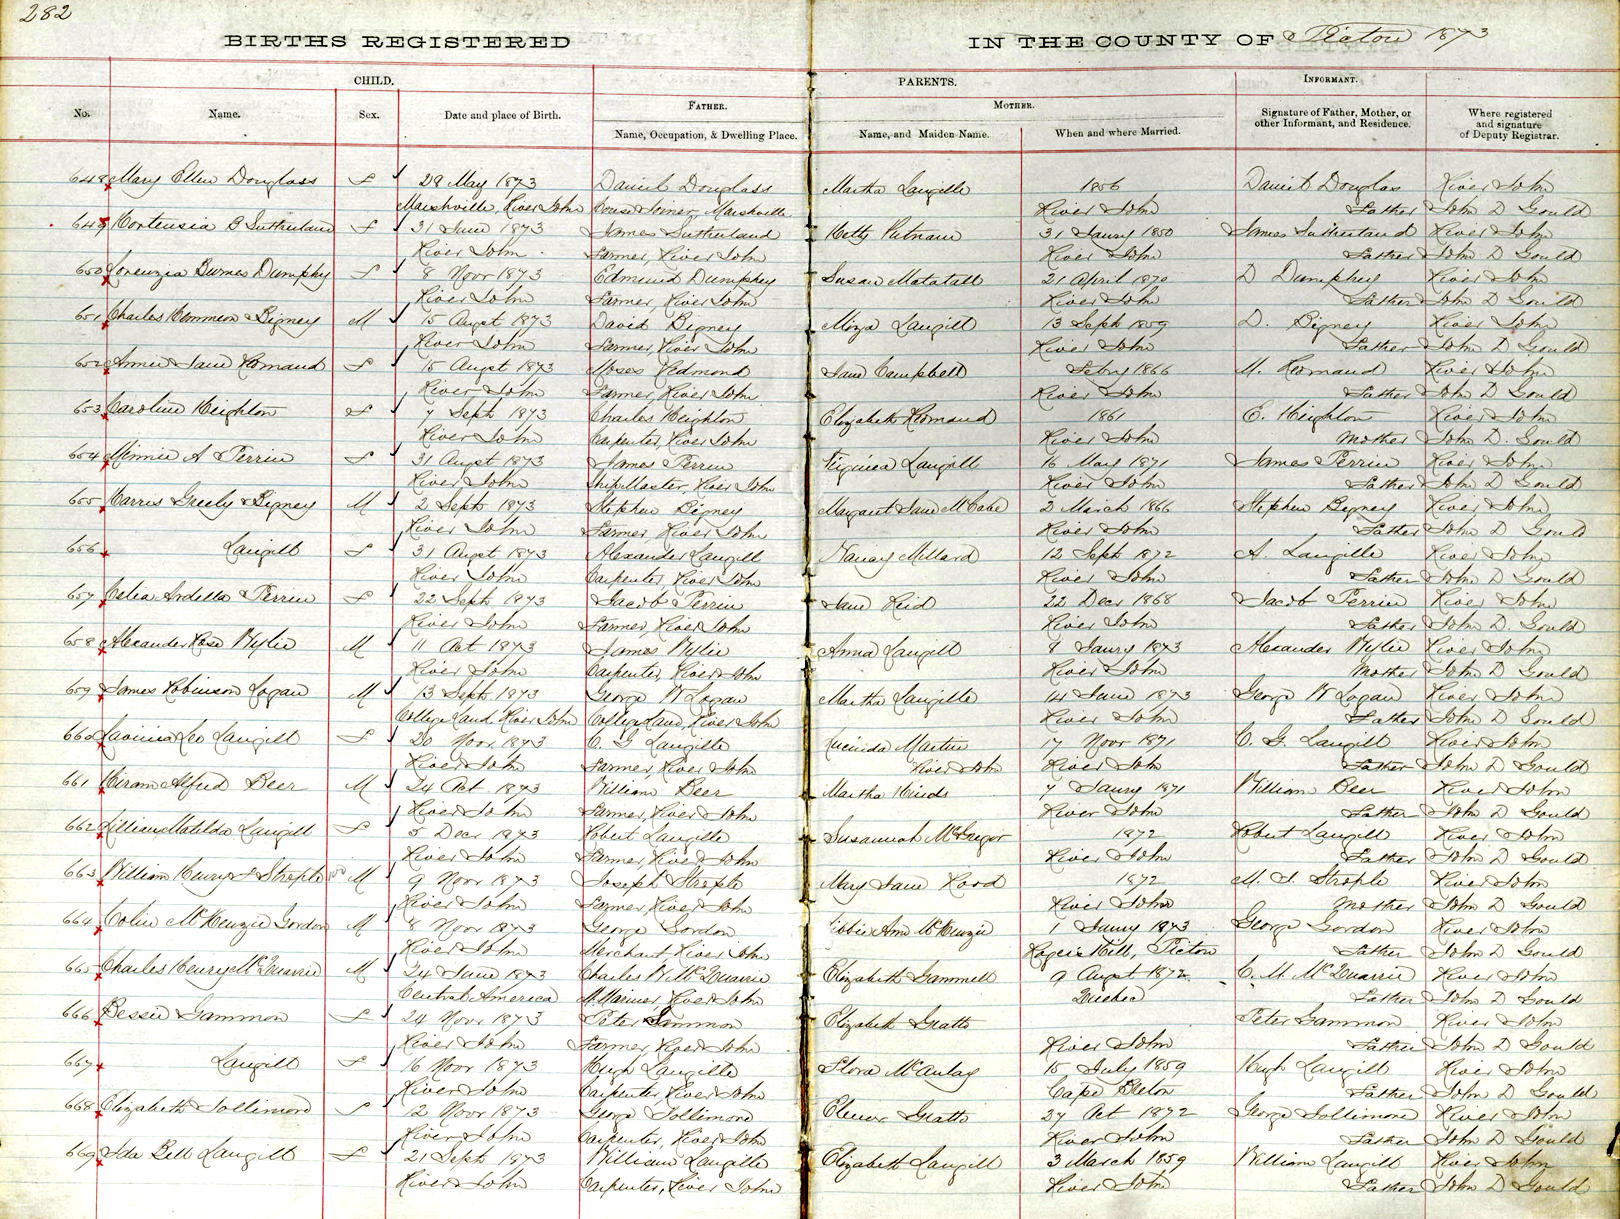 282
BIRTHS REGISTERED IN THE COUNTY OF Pictou 1873
CHILD. PARENTS. INFORMANT.
FATHER. MOTHER.
No. Name. Sex. Date and place of Birth. Name, Occupation, & Dwelling Place. Name, and Maiden Name. When and where Married. Signature of Father, Mother, or other Informant, and Residence. Where registered and signature of Deputy Registrar.
648 Mary Ellen Douglass F 28 May 1873 Daniel Douglass Martha Langille 1856 Daniel Douglas River John
Marshville, River John House Joiner, Marshville River John Father John D Gould
649 Hortensia B Sutherland F 31 June 1873 James Sutherland Hetty Putnam 31 Jauny 1850 James Sutherland River John
River John Farmer, River John River John Father John D Gould
650 Lorenzia Burnes Dumphy F 8 Novr 1873 Edmund Dumphey Susan Matatall 21 April 1870 D Dumphey River John
River John Farmer, River John River John Father John D Gould
651 Charles Cameron Bigney M 15 Augst 1873 David Bigney Langill 13 Sept 1859 D. Bigney River John
River John Farmer, River John River John Father John D Gould
652 Annie Jane Romaud F 15 Augst 1873 Moses Redmond Jane Campbell Febry 1866 M. Romaud River John
River John Farmer, River John River John Father John D Gould
653 Caroline Heighton F 7 Sept 1873 Charles Heighton Elizabeth Romaud 1861 E. Heighton River John
River John Carpenter, River John River John Mother John D. Gould
654 Minnie A Perrin F 31 Augst 1873 James Perrin Virginia Langill 16 May 1871 James Perrin River John
River John Ship Master, River John River John Father John D Gould
655 Harris Greely Bigney M 2 Sept 1873 Stephen Bigney Margaret Jane McCabe 2 March 1866 Stephen Bigney River John
River John Farmer, River John River John Father John D Gould
656 Langill F 31 Augst 1873 Alexander Langill Nancy Millard 12 Sept 1872 A. Langille River John
River John Carpenter, River John River John Father John D Gould
657 Celia Ardella Perrin F 22 Sept 1873 Jacob Perrin Jane Reid 22 Decr 1868 Jacob Perrin River John
River John Farmer, River John River John Father John D. Gould
658 Alexander Ross Wylie M 11 Oct 1873 James Wylie Anna Langill 8 Jaury 1873 Alexander Wylie River John
River John Carpenter, River John River John Mother John D Gould
659 James Robinson Logan M 13 Sept 1873 George W Logan Martha Langille 14 June 1873 George W Logan River John
College Land, River John College Land, River John River John Father John D Gould
660 Lavinia Leo Langill F 20 Novr 1873 C. G Langille Lucinda Martin 17 Novr 1871 C. G. Langill River John
River John Farmer, River John River John River John Father John D Gould
661 Hiram Alfred Beer M 24 Oct 1873 William Beer Martha Hinds 7 Jaury 1871 William Beer River John
River John Farmer, River John River John Father John D Gould
662 Lillian Matilda Langill F 5 Decr 1873 Robert Langille Susannah McGregor 1872 Robert Langill River John
River John Farmer, River John River John Father John D Gould
663 William Henry Strople M 9 Novr 1873 Joseph Strople Mary Jane Rood 1872 M. J. Strople River John
River John Farmer, River John River John Mother John D Gould
664 Colin McKenzie Gordon M 8 Novr 1873 George Gordon Tobbie Ann McKenzie 1 Jaury 1873 George Gordon River John
River John Merchant, River John Rogers Hill, Pictou Father John D Gould
665 Charles Henry McQuarrie M 24 June 1873 Charles W McQuarrie Elizabeth Gammell 9 Augst 1872 C. M. McQuarrie River John
Central America M. Mariner, River John Quebec Father John D Gould
666 Bessie Gammon F 24 Novr 1873 Peter Gammon Elizabeth Gratto Peter Gammon River John
River John Farmer, River John River John Father John D Gould
667 Langill F 16 Novr 1873 Hugh Langille Flora McAulay 15 July 1859 Hugh Langill River John
River John Carpenter, River John Cape Breton Father John D Gould
668 Elizabeth Tollimore F 12 Novr 1873 George Tollimore Elenor Gratto 27 Oct 1872 George Tollimore River John
River John Carpenter, River John River John Father John D Gould
669 Ida Bell Langill F 21 Sept 1873 William Langille Elizabeth Langill 3 March 1859 William Langill River John
River John Carpenter, River John River John Father John D Gould